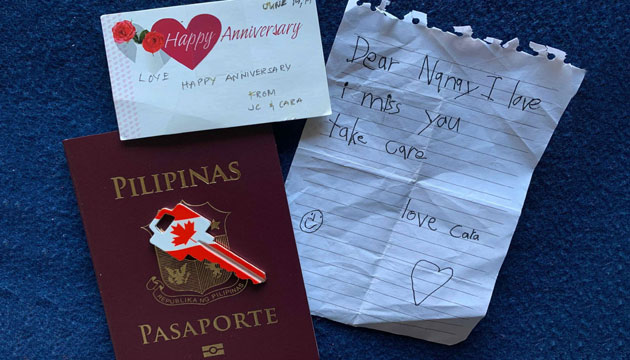 Happy Anniversary
LOVE HAPPY ANNIVERSARY
FROM
JC & CARA
Dear Nanay I love
i miss you
take care
love Cara
PILIPINAS
REPUBLIKA NG PILIPINAS
PASAPORTE